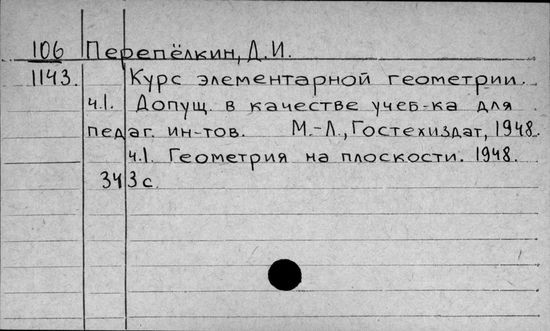 106 Перепёлкин, Д.И.
1143. Курс элементарной геометрии.
ч.1. Допущ. в качестве учеб-ка для
педаг. ин-тов. М.-Л., Гостехиздат, 1948.
ч.1. Геометрия на плоскости. 1948.
343 с.